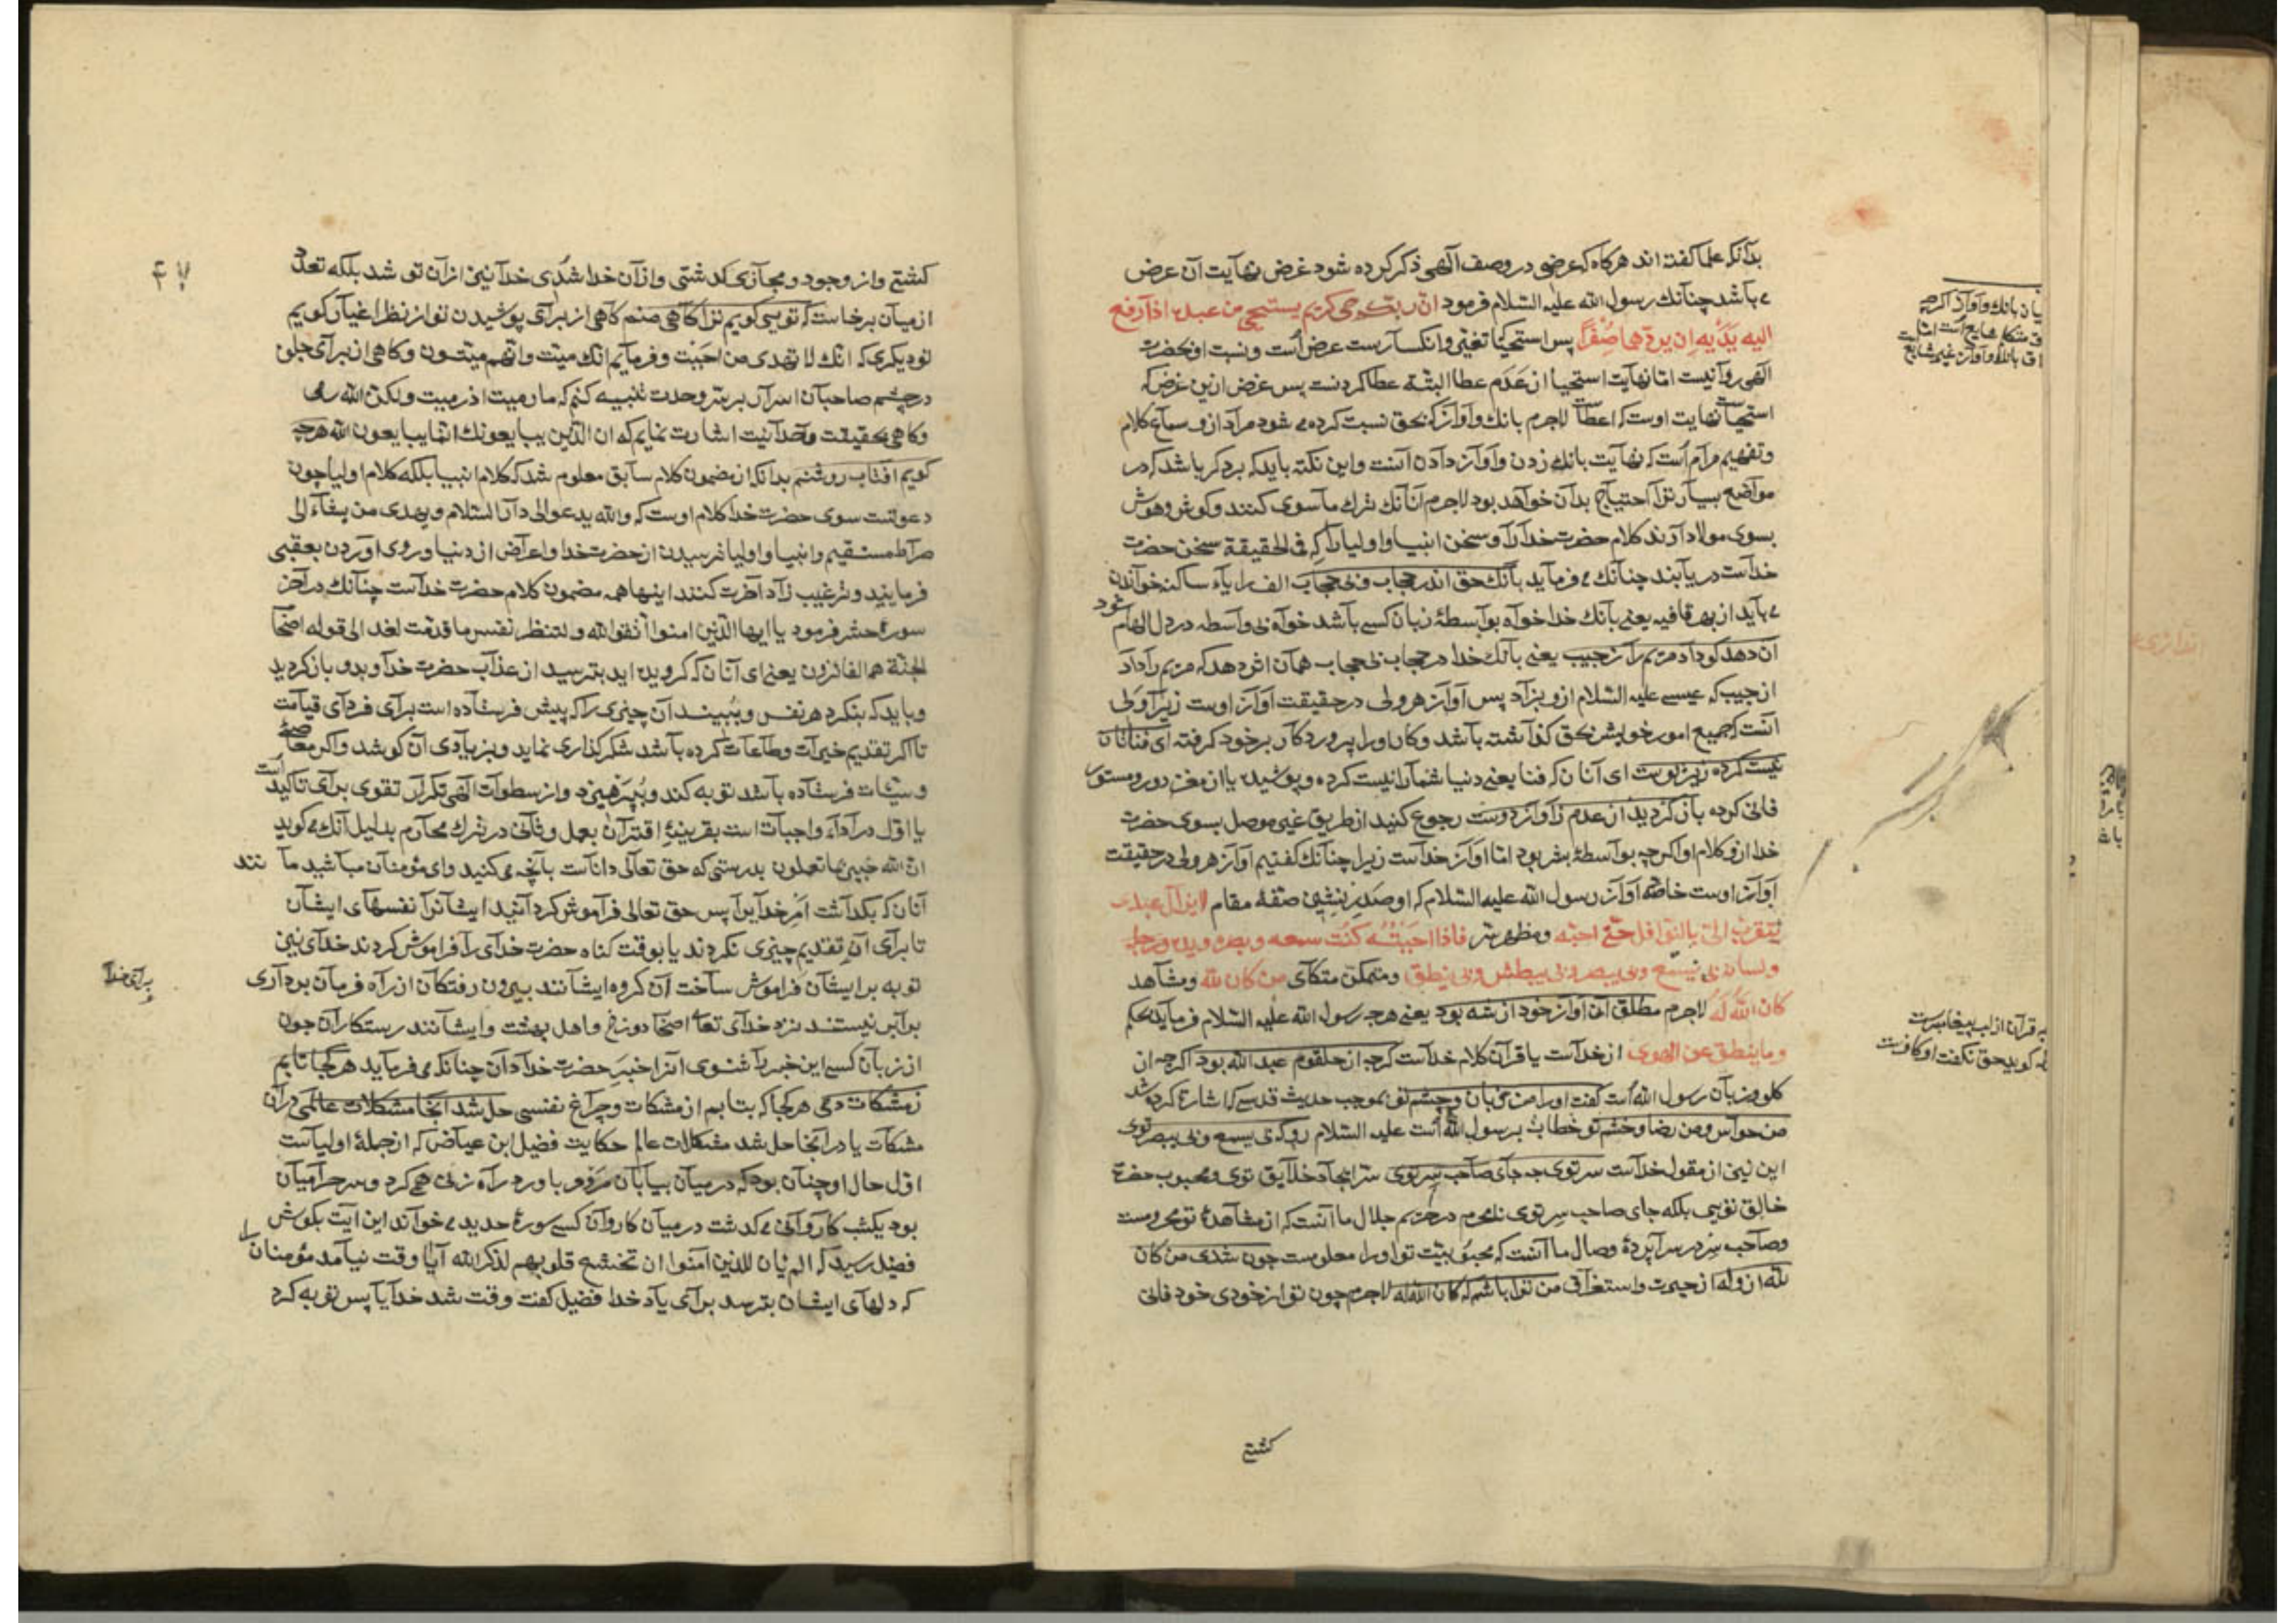 بدآنکه علما کفته اند هرکاه که عرضی در وصف آلهی ذکر کرده شود غرض نهآیت آن عرض
می بآشد چنآنك رسول الله علیه السّلام فرمود انّ ربّکم حی کریم یستحیی من عبده اذا رفع
الیه یدَیْه ان یردّهما صُِفْرًا پس استحیآ تغیّر وانکسآرست عرض اُست ونسبت او بحضرت
آلهی روآ نیست امّا نهآیت استحیآ از عَدَم عطا البتّه عطا کردنست پس غرض ازین عرض که
استحیآست نهآیت اوست که اعطآست لاجرم بانك وآوآز که بحق نسبت کرده می شود مرآد ازو سمآع کلام
وتفهیم مرآم اُست که نهآیت بانك زدن وآوآز دآدن آنست واین نکته باید که بر ذکر باشد که در
موآضع بسیآر ترآ احتیآج بدآن خوآهد بود لاجرم آنآنك ترك مآسوی کنند وکوش وهوش
بسوی مولا دآرند کلام حضرت خدآرآ وسخن انبیا واولیا رآ که فی الحقیقة سخن حضرت
خدآست دریآبند چنآنك می فرماید بآنك حق اندر حجاب وبی حجاب الف را یآء ساکنه خوآندن
می باید از بهر قافیه یعنی بآنك خدا خوآه بوآسطۀ زبان کسی بآشد خوآه بی وآسطه در دل الهام شود
آن دهد کو دآد مریم رآ ز جیب یعنی بآنك خدا در حجاب بی حجاب همآن اثر دهد که مریم رآ دآد
از جیب که عیسی علیه السّلام ازو بزآد پس آوآز هر ولی در حقیقت آوآز اوست زیرآ ولی
آنست که جمیع امور خویش بحق کذآشته بآشد وکار اورا پروردکآر بر خود کرفته ای فناتان
نیست کرده زیر پوست ای آنان که فنا یعنی دنیا شمآرا نیست کرده وپوشیده یا از مغز دور ومستور
فانی کرده باز کردید از عدم ز آوآز دوست رجوع کنید از طریق غیر موصل بسوی حضرت
خدا ازو کلام او اکرچه بوآسطۀ بشر بود امّا آوآز خدآست زیرا چنآنك کفتیم آوآز هر ولی در حقیقت
آوآز اوست خاصّه آوآز رسول الله علیه السّلام که او صَدر نشین صفّۀ مقام لا یزآل عبدی
یتقرّب الیّ بالنوآفل حتّی احبّه ومظهر سرّ فاذا احبَبْتُه کنْت سمعه وبصره ویده ورجله
ولسانه بی یسمع وبی یبصر وبی یبطش وبی ینطق ومتمکّن متکآی من کان لله ومشآهد
کان اللهُ لَهُ لاجرم مطلق آن آوآز خود از شه بود یعنی هرچه رسول الله علیه السّلام فرماید بحکم
وما ینطق عن الهوی از خدآست یا قرآن کلام خدآست کرچه از حلقوم عبد الله بود اکرچه از
کلو وزبآن رسول الله اُست کفت اورا من زبان وچشم تو بموجب حدیث قدسی که اشارة کرده شد
من حوآس ومن رضا وخشم تو خطاب برسول الله اُست علیه السّلام رو که بی یسمع وبی یبصر توی
این نیز از مقول خدآست سر توی چه جآی صآحب سرّ توی سرّ ایجآد خلآیق توی ومحبوب حضرة
خالق توی بلکه جای صاحب سر توی نامحرم در حریم جلال ما آنست که از مشاهدۀ تو محرومست
وصآحب سِر در سرآپردۀ وصال ما آنست که محبوبیّت تو اورا معلومست چون شدی من کان
لله از وله از حیرت واستغرآق من ترا باشم که کان الله له لاجرم چون تو از خودی خود فانی
کشتی
یا ز بانك وآوآز اکرچه
به قرآن از لب پیغامبرست
که کوید حق نکفت او کافرست
۴۷
کشتی واز وجود ومجآزی کذشتی وازآن خدا شُدی خدآ نیز ازآن تو شد بلکه تعدّد
از میآن برخاست که توی کویم ترآ کآهی منم کآهی از برآی پوشیدن تو از نظر اغیآر کویم
تو دیکری که انّك لا تهدی من احببت وفرمآیم انّك میّت وانّهم میّتون وکاهی از برآی جلوه
در چشم صاحبآن اسرآر بر سرّ وحدت تنبیه کنم که ما رمیت اذ رمیت ولکنّ الله رمی
وکآهی بحقیقت وحدآنیت اشارت نمایم که ان الّذین یبایعونك انّما یبایعون الله هرچه
کویم آفتاب روشنم بدآنکه از مضمون کلام سابق معلوم شد که کلام انبیا بلکه کلام اولیا چون
دعوتست سوی حضرت خدا کلام اوست که والله یدعو الی دآر السّلام ویهدی من یشآء الی
صرآط مستقیم وانبیا واولیا ترسیدن از حضرت خدا واعرآض از دنیا وروی آوردن بعقبی
فرمایند وترغیب زآد آخرت کنند اینها همه مضمون کلام حضرت خدآست چنآنك در آخر
سورۀ حشر فرمود یا ایها الّذین امنوا اتقوا الله ولتنظر نفس ما قدّمت لغد الی قوله اصحآب
الجنّة هم الفائزون یعنی ای آنان که کرویده اید بترسید از عذآب حضرت خدآ وبدو باز کردید
وباید که بنکرد هر نفس وببیند آن چیزی را که پیش فرستآده است برآی فردآی قیآمت
تا اکر تقدیم خیرآت وطآعآت کرده بآشد شکرکذاری نماید وبزیآدی آن کوشد واکر معآصی
وسیّئات فرستآده بآشد توبه کند وبپرهیزد واز سطوآت آلهی تکرآر تقوی برآی تاکید است
یا اوّل در آدآء واجبآت است بقرینۀ اقترآن بعمل وثآنی در ترك محآرم بدلیل آنك می کوید
انّ الله خبیر بما تعملون بدرستی که حق تعآلی دانآست بآنچه می کنید وای مؤمنآن مبآشید مآنند
آنان که بکذآشتند امر خدآیرآ پس حق تعالی فرآموش کردآنید ایشآنرآ نفسهآی ایشآن
تا برآی آن تقدیم چیزی نکردند یا بوقت کناه حضرت خدآی رآ فرآموش کردند خدآی نیز
توبه بر ایشآن فرآموش سآخت آن کروه ایشآنند بیرون رفتکآن از رآه فرمآن بردآری
برآبر نیستند نزد خدآی تعآ اصحآ دوزخ واهل بهشت وایشآنند رستکارآن چون
از زبآن کسی این خبر رآ شنوی آنرا خبَرِ حضرت خدآ دآن چنآنکه می فرماید هر کجا تابم
ز مشکات دمی هر کجا که بتابم از مشکات وچرآغ نفسی حل شد آنجا مشکلات عالمی در آن
مشکآت یا در آنجا حل شد مشکلات عالم حکایت فضیل ابن عیآض که از جملۀ اولیآست
اوّل حال او چنآن بود که در میآن بیآبآن مرو وباورد رآه زنی همی کرد وسر حرآمیآن
بود یکشب کآروآنی می کذشت در میآن کاروآن کسی سورۀ حدید می خوآند این آیت بکوش
فضیل رسید که الم یأن للذین آمنوا ان تخشع قلوبهم لذکر الله آیآ وقت نیآمد مؤمنانرا
که دلهآی ایشان بترسد برآی یآد خدا فضیل کفت وقت شد خدآیا پس توبه کرد
برآی خدآ